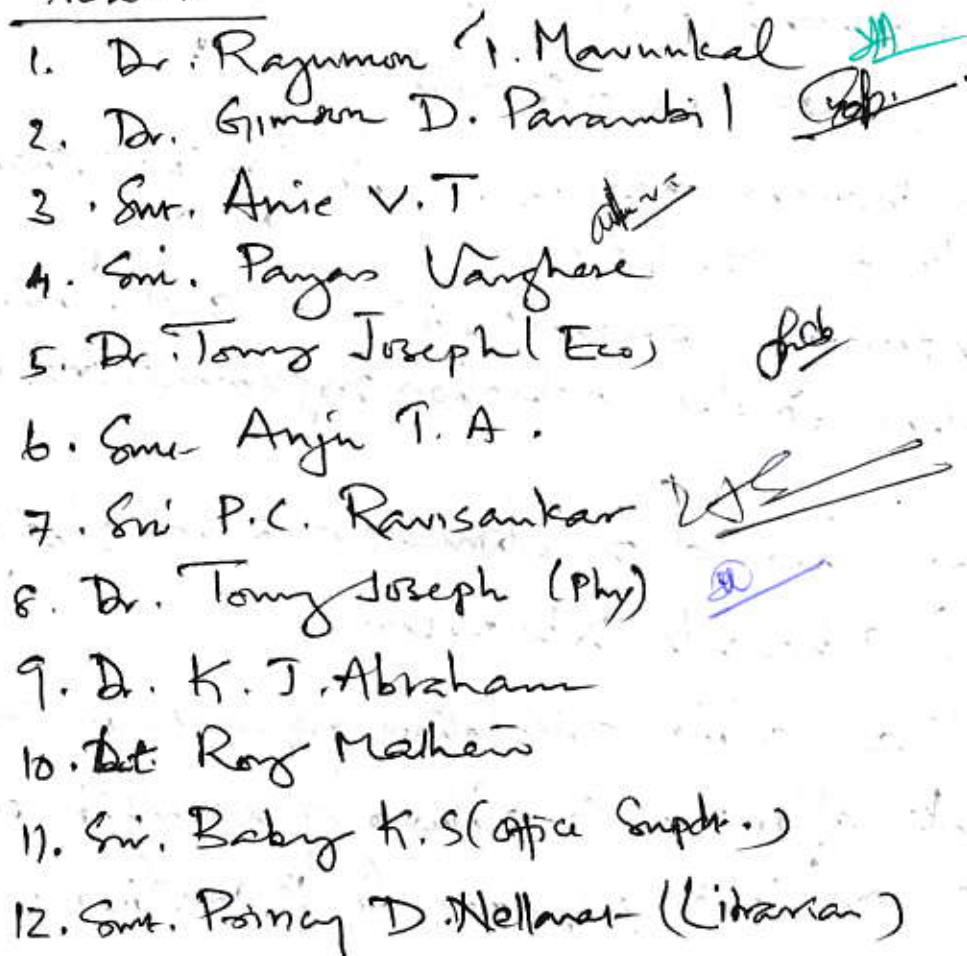 1. Dr. Rajumon T. Mavunkal
2. Dr. Gimson D. Parambil
3. Smt. Anie V.T
4. Sri. Payas Varghese
5. Dr. Tomy Joseph (Eco)
6. Smt. Anju T. A.
7. Sri P.C. Ravisankar
8. Dr. Tomy Joseph (Phy)
9. Dr. K. J. Abraham
10. Roy Mathew
11. Sri. Baby K.S (Office Supdt.)
12. Smt. D. (Librarian)